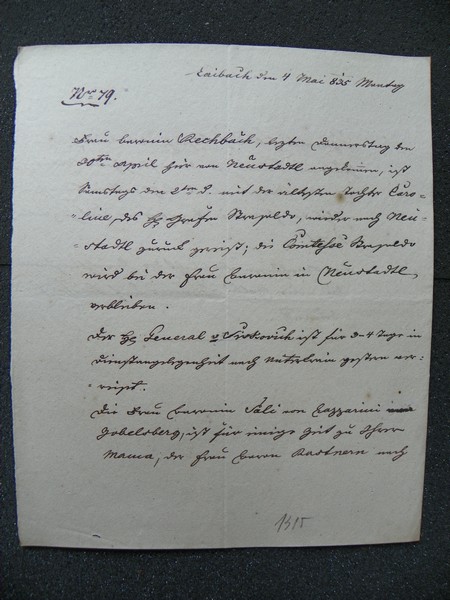 Laibach den 4 Mai 835 Montag
Nro 79.
Frau baronin Rechbach, lezten Donnerstag den
30ten April hier von Neustadtl angekommen, ist
Samstags den 2ten d. mit der ältesten Tochter Caro-
-line, des H: Grafen Strasoldo, wieder nach Neu-
-stadtl zurück gereist; die Comtesse Strasoldo
wird bei der Frau baronin in Neustadtl
verbleiben.
Der H: General v ist für 3-4 Tage in
Dienstangelegenheit nach gestern ver-
-reist.
Die Frau baronin Sali von Lazzarini
Gobelsberg, ist für einige Zeit zu Ihrer
Mama, der Frau baron nach
1315